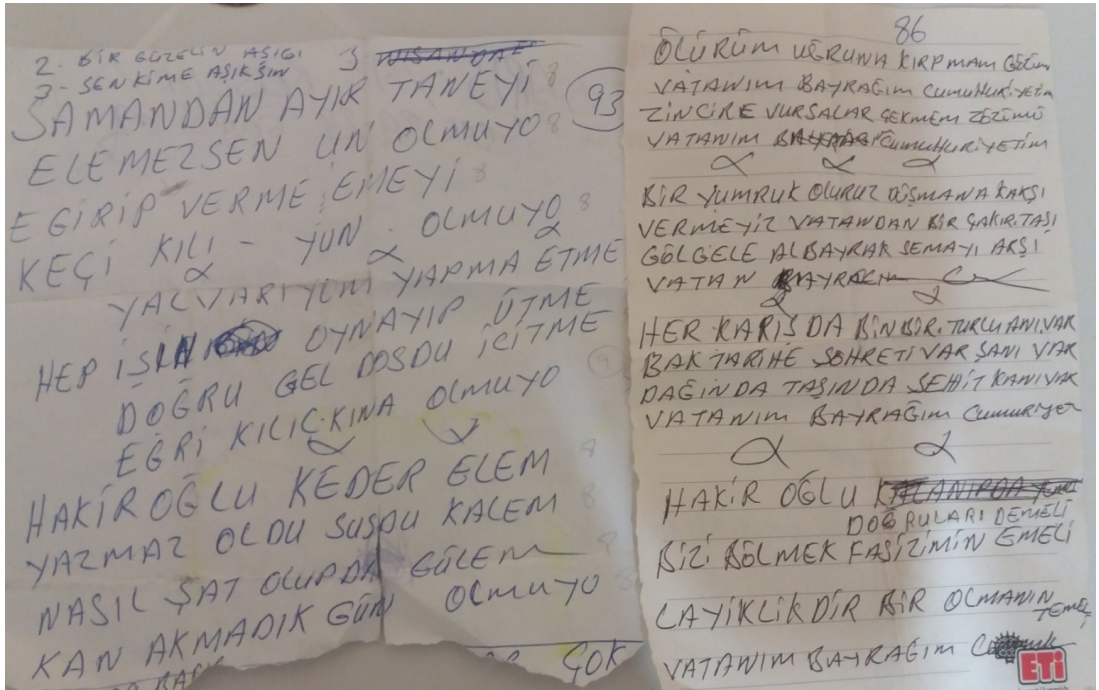 2- BİR GÜZELİN AŞIĞI
3- SEN KİME AŞIKSIN
3
93
SAMANDAN AYIR TANEYİ 8
ELEMEZSEN UN OLMUYO 8
EGİRİP VERME EMEYİ 8
KEÇİ KILI - YÜN OLMUYO 8
YALVARIYIM YAPMA ETME
HEP İŞİN OYNAYIP ÜTME
DOĞRU GEL DOSDU İCİTME
EĞRİ KILIC.KINA OLMUYO
HAKİROĞLU KEDER ELEM
YAZMAZ OLDU SUSDU KALEM 8
NASIL ŞAT OLUPDA GÜLEM
KAN AKMADIK GÜN OLMUYO
ÇOK
86
ÖLÜRÜM UĞRUNA KIRPMAM GÖZÜM
VATANIM BAYRAĞIM CUMUHURİYETİM
ZİNCİRE VURSALAR ÇEKMEM
VATANIM CUMUHURİYETİM
BİR YUMRUK OLURUZ DÜŞMANA KAKŞI
VERMEYİZ VATANDAN BİR ÇAKIR.TAŞI
GÖLGELE ALBAYRAK SEMAYI ARŞI
VATAN BAYRAĞIM
HER KARIŞDA BİNBİR.TURLU ANI.VAR
BAK TARİHE ŞOHRETİ VAR ŞANI VAR
DAĞINDA TAŞINDA ŞEHİT KANI VAR
VATANIM BAYRAĞIM CUMURİYET
HAKİR OĞLU
DOĞRULARI DEMELİ
BİZİ BÖLMEK FAŞİZİMİN EMELİ
LAYİKLİKDİR BİR OLMANIN
TEMELİ
VATANIM BAYRAĞIM
ETİ